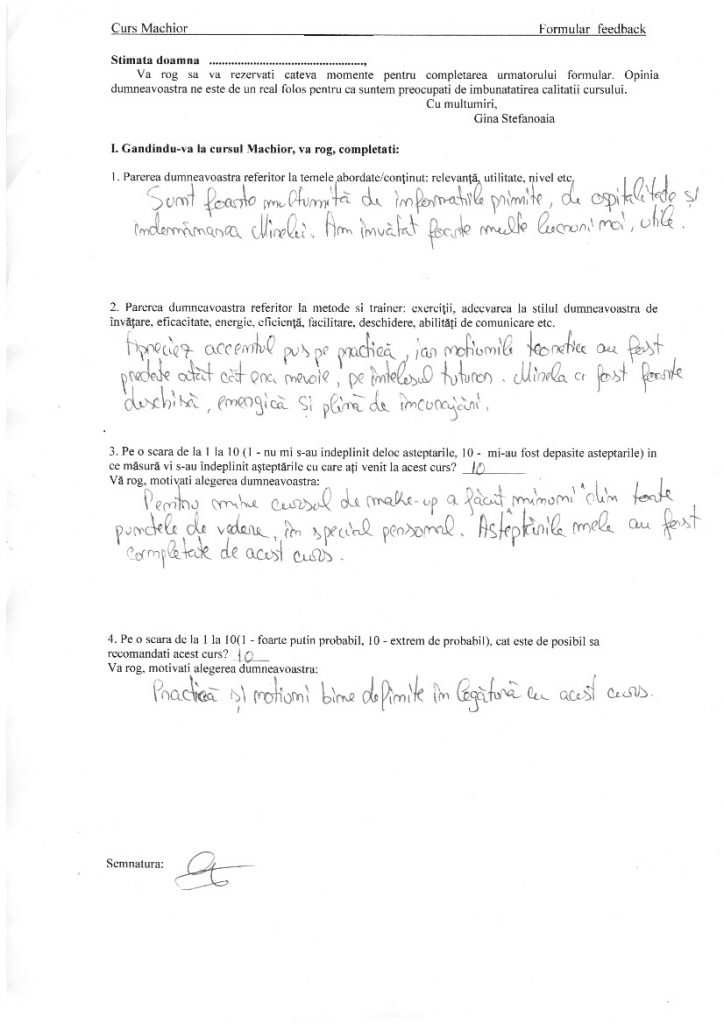 Curs Machior Formular feedback
Stimata doamna ......................................................,
Va rog sa va rezervati cateva momente pentru completarea urmatorului formular. Opinia
dumneavoastra ne este de un real folos pentru ca suntem preocupati de imbunatatirea calitatii cursului.
Cu multumiri,
Gina Stefanoaia
I. Gandindu-va la cursul Machior, va rog, completati:
1. Parerea dumneavoastra referitor la temele abordate/conținut: relevanță, utilitate, nivel etc.
Sunt foarte multumită de informatiile primite, de ospitalitate și
indemânarea Mirelei. Am învătat foarte multe lucruri noi, utile.
2. Parerea dumneavoastra referitor la metode si trainer: exerciții, adecvarea la stilul dumneavoastra de
învățare, eficacitate, energie, eficiență, facilitare, deschidere, abilități de comunicare etc.
Apreciez accentul pus pe practică, iar notiunile teoretice au fost
predate atât cât era nevoie, pe întelesul tuturor. Mirela a fost foarte
deschisă, energică și plină de încurajări.
3. Pe o scara de la 1 la 10 (1 - nu mi s-au indeplinit deloc asteptarile, 10 - mi-au fost depasite asteptarile) in
ce măsură vi s-au îndeplinit așteptările cu care ați venit la acest curs? 10
Vă rog, motivati alegerea dumneavoastra:
Pentru mine cursul de make-up a făcut "minuni" din toate
punctele de vedere, în special personal. Așteptările mele au fost
completate de acest curs.
4. Pe o scara de la 1 la 10(1 - foarte putin probabil, 10 - extrem de probabil), cat este de posibil sa
recomandati acest curs? 10
Va rog, motivati alegerea dumneavoastra:
Practică și notiuni bine definite în legătură cu acest curs.
Semnatura: